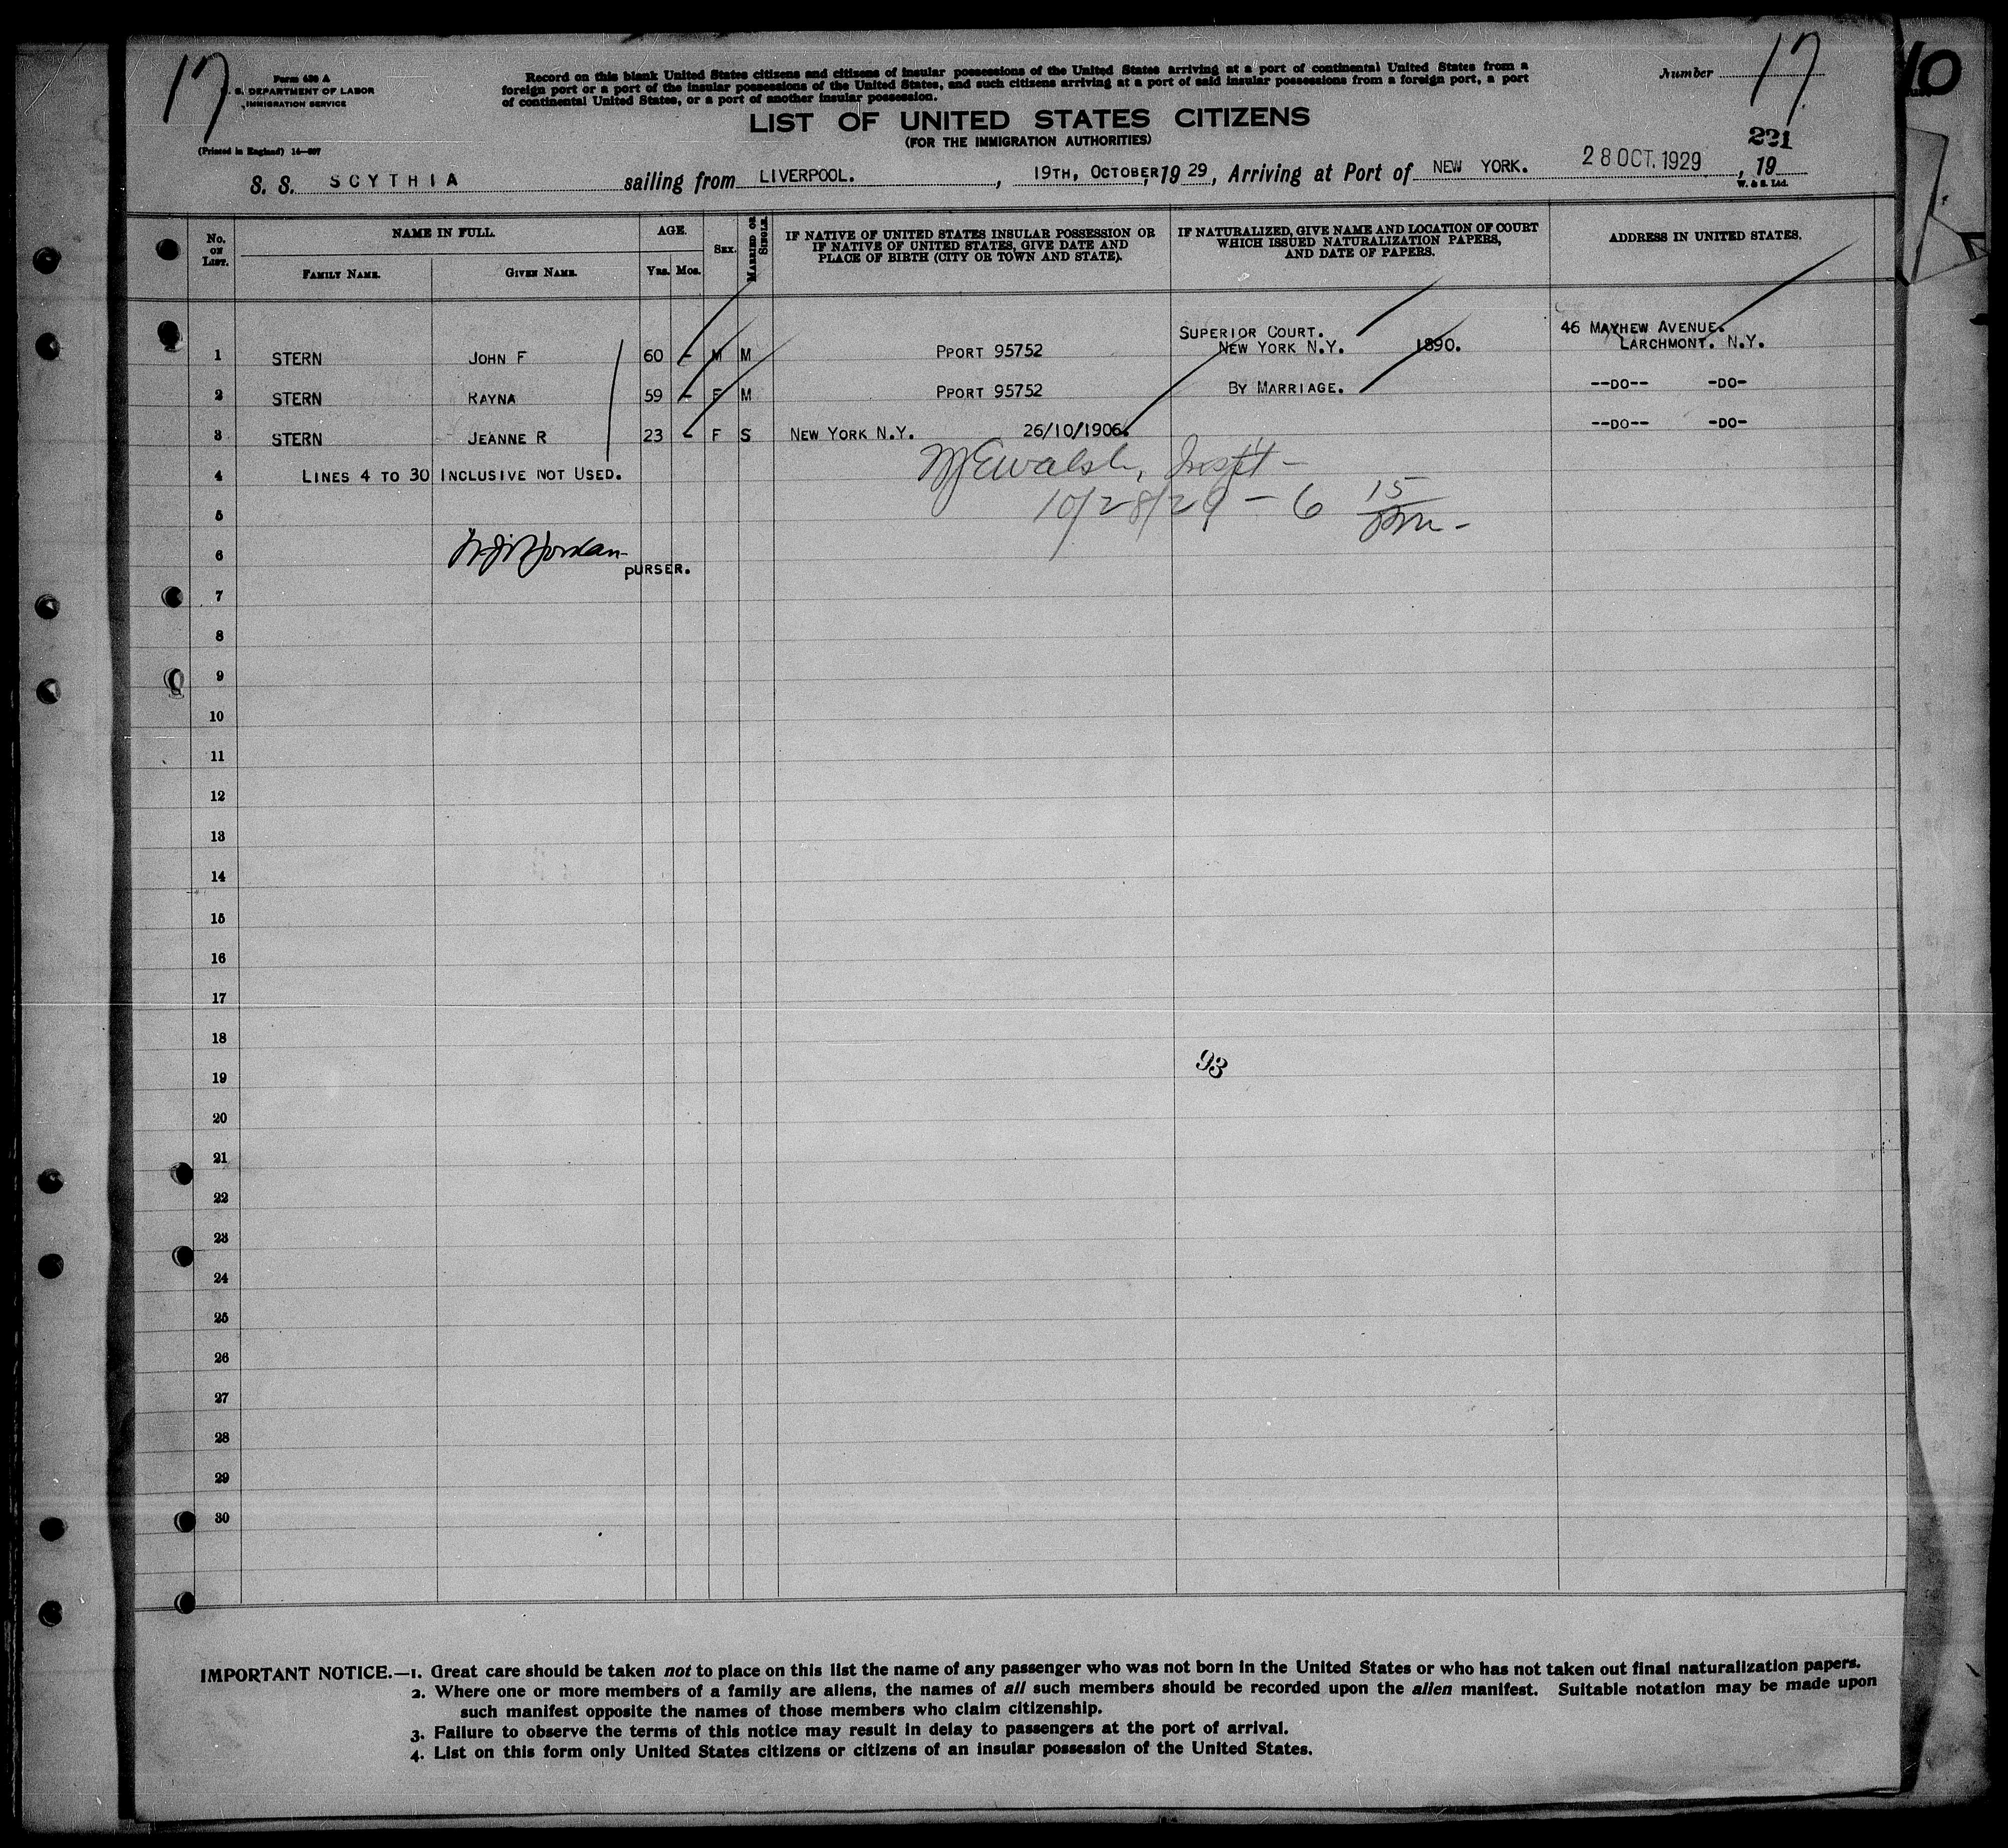 17
Form 630 A
S. DEPARTMENT OF LABOR
IMMIGRATION SERVICE
(Printed in England) 14—807
Record on this blank United States citizens and citizens of insular possessions of the United States arriving at a port of continental United States from a
foreign port or a port of the insular possessions of the United States, and such citizens arriving at a port of said insular possessions from a foreign port, a port
of continental United States, or a port of another insular possession.
Number 17
10
LIST OF UNITED STATES CITIZENS
(FOR THE IMMIGRATION AUTHORITIES)
221
S. S. SCYTHIA sailing from LIVERPOOL. , 19TH, OCTOBER, 19 29, Arriving at Port of NEW YORK. 28 OCT. 1929, 19
W. & S. Ltd.
No. ON LIST. NAME IN FULL. FAMILY NAME. GIVEN NAME. AGE. YRS. MOS. SEX. MARRIED OR SINGLE. IF NATIVE OF UNITED STATES INSULAR POSSESSION OR IF NATIVE OF UNITED STATES, GIVE DATE AND PLACE OF BIRTH (CITY OR TOWN AND STATE). IF NATURALIZED, GIVE NAME AND LOCATION OF COURT WHICH ISSUED NATURALIZATION PAPERS, AND DATE OF PAPERS. ADDRESS IN UNITED STATES.
SUPERIOR COURT. 46 MAYHEW AVENUE.
1 STERN JOHN F 60 - M M PPORT 95752 NEW YORK N.Y. 1890. LARCHMONT. N.Y.
2 STERN RAYNA 59 - F M PPORT 95752 BY MARRIAGE. --DO-- -DO-
3 STERN JEANNE R 23 - F S NEW YORK N.Y. 26/10/1906. --DO-- -DO-
4 LINES 4 TO 30 INCLUSIVE NOT USED.
MJEWalsh, Inspt -
10/28/29 - 6 15 pm -
5
6
PURSER.
7
8
9
10
11
12
13
14
15
16
17
18
93
19
20
21
22
23
24
25
26
27
28
29
30
IMPORTANT NOTICE.—1. Great care should be taken not to place on this list the name of any passenger who was not born in the United States or who has not taken out final naturalization papers.
2. Where one or more members of a family are aliens, the names of all such members should be recorded upon the alien manifest. Suitable notation may be made upon
such manifest opposite the names of those members who claim citizenship.
3. Failure to observe the terms of this notice may result in delay to passengers at the port of arrival.
4. List on this form only United States citizens or citizens of an insular possession of the United States.